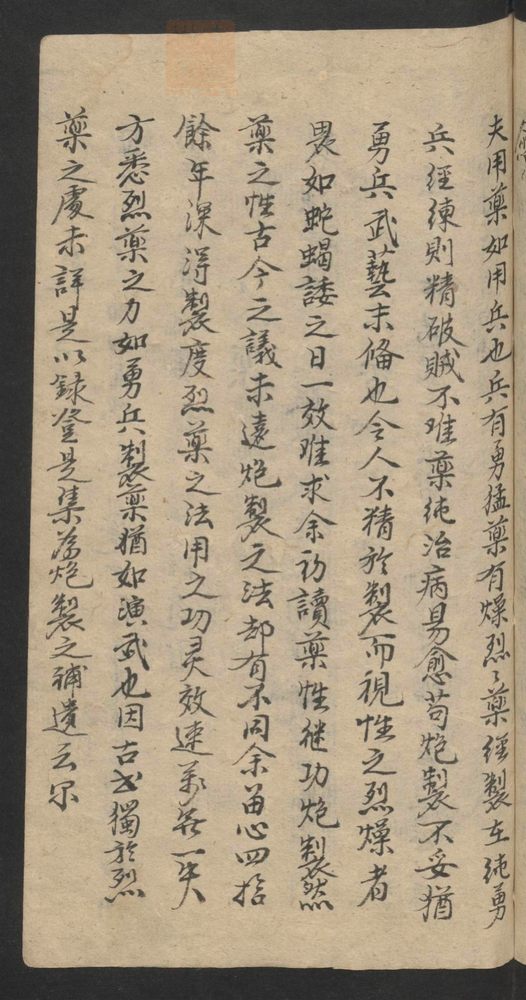 夫用藥如用兵也兵有勇猛藥有燥烈〻藥經製在純勇
兵經練則精破賊不难藥純治病易愈苟炮製不妥猶
勇兵武藝未偹也今人不精於製而視性之烈燥者
畏如蛇蝎諉之日一效难求余初讀藥性継功炮製然
藥之性古今之議未遠炮製之法却有不同余畄心四拾
餘年深得製度烈藥之法用之功灵效速萬無一失
方悉烈藥之力如勇兵製藥猶如演武也因古书獨於烈
藥之處未詳是以録登是集為炮製之補遺云尔